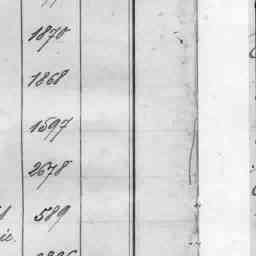 1870
1868
1597
2678
589
ie.